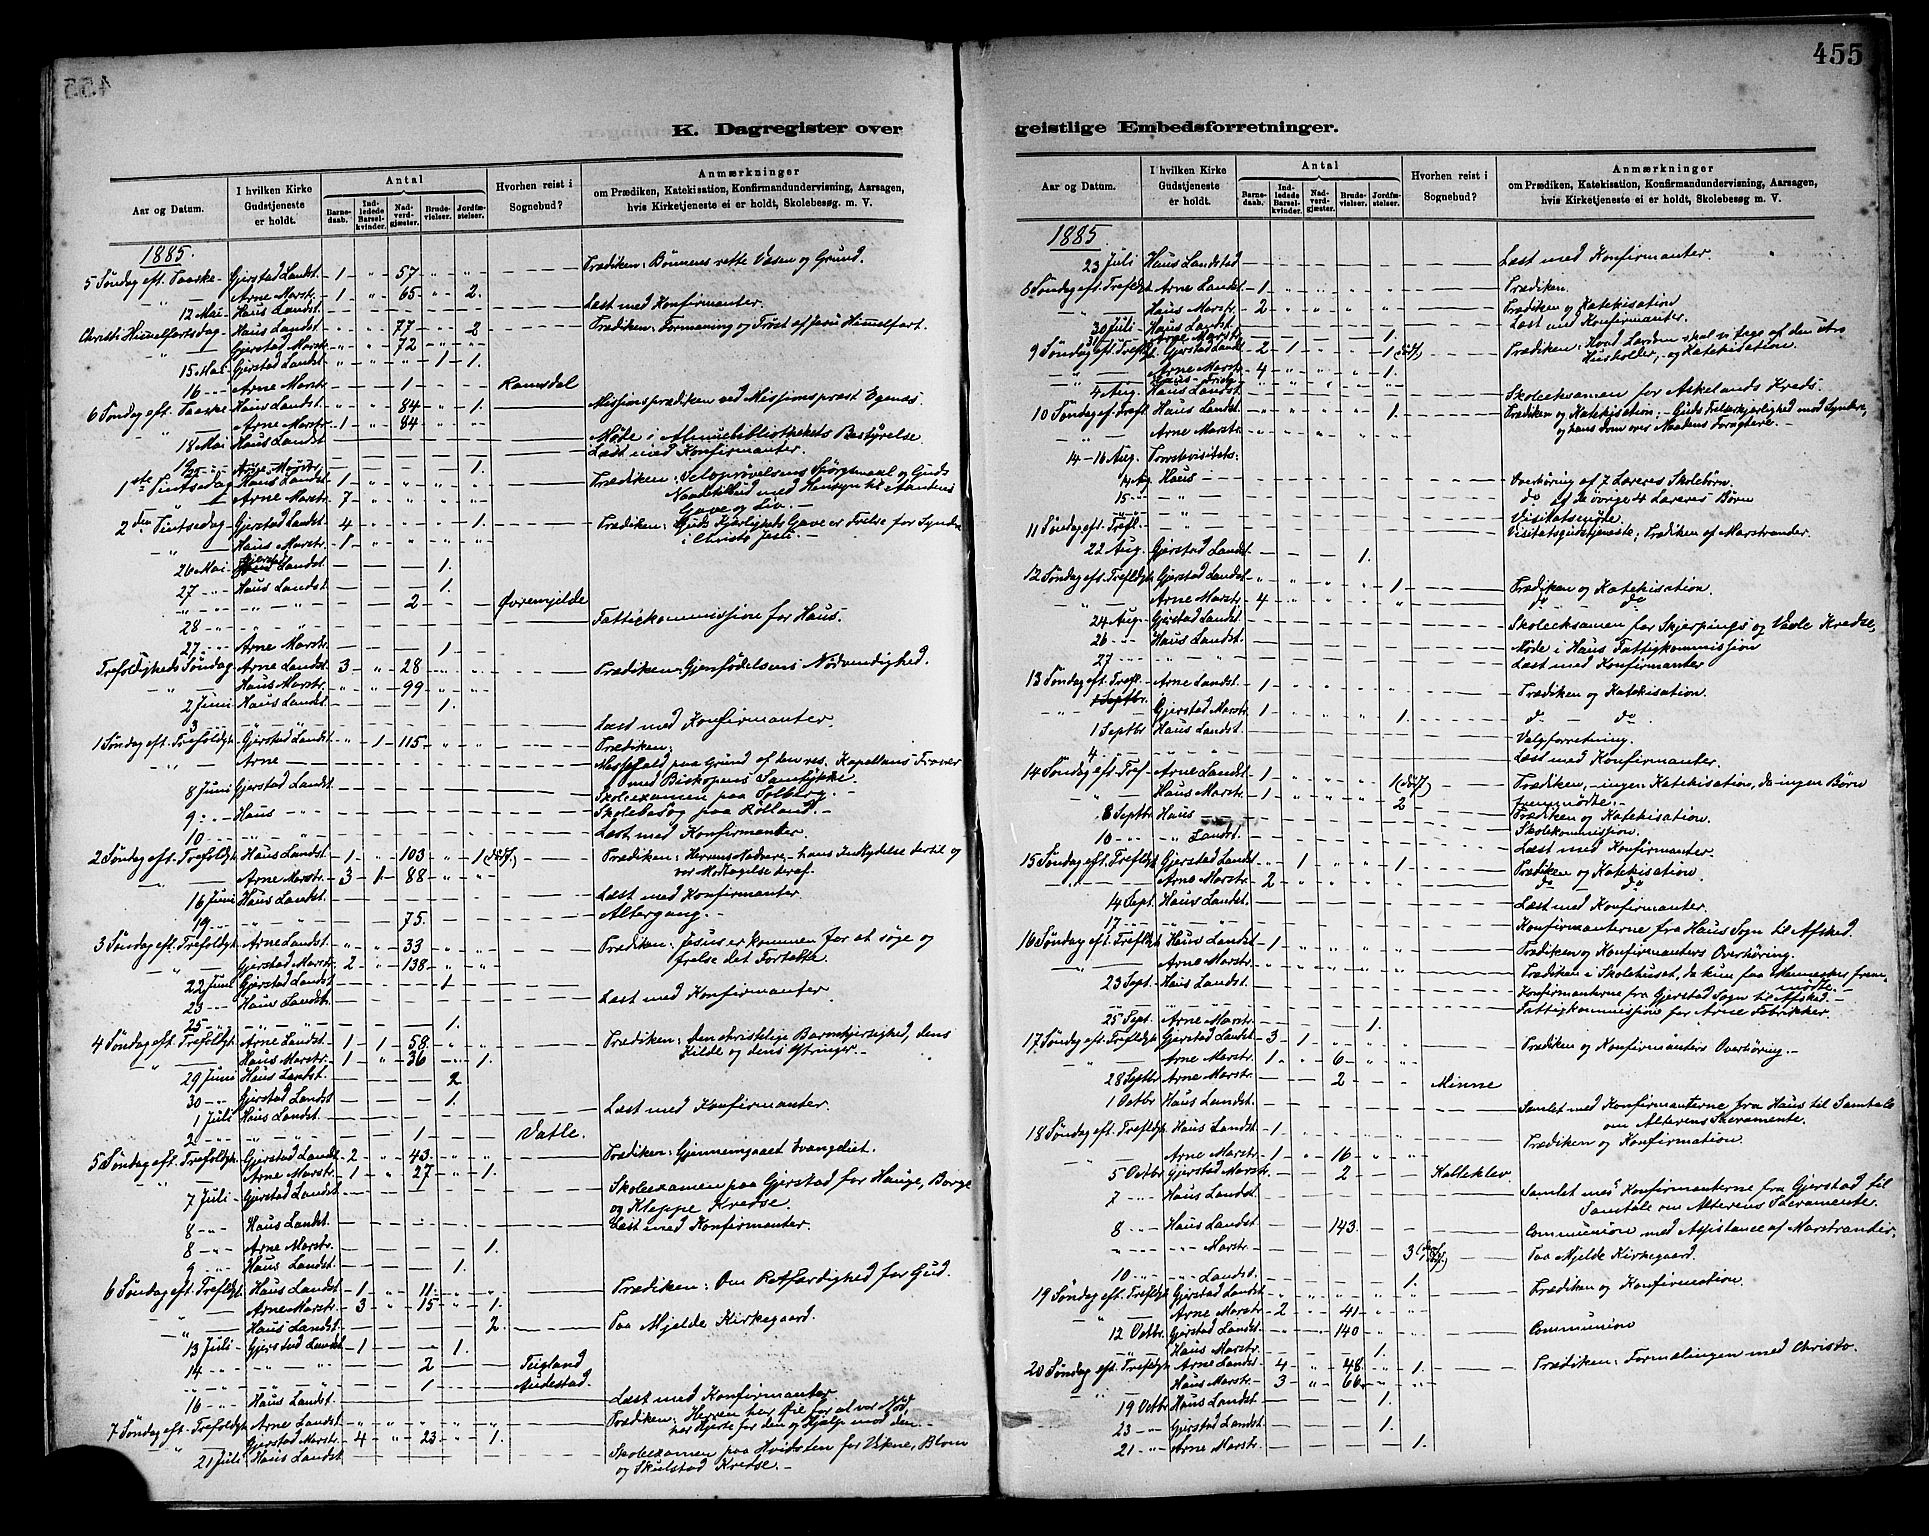 455
K. Dagregister over
geistlige Embedsforretninger.
Aar og Datum.
I hvilken Kirke Gudstjeneste er holdt.
Antal
Barnedaab.
Indledede Barselkvinder.
Nadverdgjæster.
Brudevielser.
Jordfæstelser.
Hvorhen reist i Sognebud?
Anmærkninger
om Prædiken, Katekisation, Konfirmandundervisning, Aarsagen,
hvis Kirketjeneste ei er holdt, Skolebesøg. m. V.
1885.
5 Søndag eft. Paaske Gjerstad Landst. 1 " 57 " " Prædiken: Bønnens rette Væsen og Grund.
" Arne Marstr. 1 " 65 " 2.
12 Mai Haus Landst. Læst med Konfirmanter.
Christi Himmelfartsdag Haus Landst. " " 77 " 2 Prædiken: Formaning og Trøst af Jesu Himmelfart.
" Gjerstad Marstr. " " 72 " "
15 Mai Gjerstad Landst. 1 1.
16 Arne Marstr. 1 Ramsdal
6 Søndag eft. Paaske Haus Landst. " " 84 " 1. Missionsprædiken ved Missionsprest Egenæs.
" Arne Marstr. 1 " 84 " "
18 Mai Haus Landst. Møde i Almuebibliothekets Bestyrelse
Læst med Konfirmanter.
Arne Marstr. 1.
1ste Pintsedag Haus Landst. 1 Prædiken: Selvprøvelsens Spørgsmaal og Guds
" Arne Marstr. 7 Naadetilbud med Hensyn til Aandens
Gave og Liv.
2den Pintsedag Gjerstad Landst. 4 " " " 1. Prædiken: Guds Kjærligheds Gave er Frelse for Syndere
" Haus Marstr. 1 i Christo Jesu.
26 Mai Gjerstad Landst. 1.
27 " Haus Landst. 1.
" " 2 Øvremjelde
28 " " Fattigkommissjion for Haus.
27 Arne Marstr. 1.
Trefoldigheds Søndag Arne Landst. 3 " 28 " " Prædiken: Gjenfødelsens Nødvendighed.
" Haus Marstr. " " 99
2 Juni Haus Landst. 1.
3 " " Læst med Konfirmanter
1 Søndag eft. Trefoldigh. Gjerstad Landst. " 1 115 " " Prædiken:
" Arne Messefald paa Grund af den res. Kapellans Fravær
med Biskopens Samtykke
8 Juni Gjerstad Landst. Skoleexamen paa Solberg.
9 Haus " Skolebesøg paa Rolland.
10 " " Læst med Konfirmanter.
2 Søndag eft. Trefoldigh. Haus Landst. 1 " 103 " 1 Prædiken: Herrens Nadvere, hans Indbydelse dertil og
" Arne Marstr. 3 1 88 " " vor Modtagelse deraf.
16 Juni Haus Landst. Læst med Konfirmanter
19 " " 75. Altergang.
3 Søndag eft. Trefoldigh. Arne Landst. " " 33 " " Prædiken: Jesus er kommen for at søge og
" Gjerstad Marstr. 2 " 138 " " frelse det Fortabte.
22 Juni Gjerstad Landst. 1
23 Haus Landst. Læst med Konfirmanter
25 " " 1.
4 Søndag eft. Trefoldigh. Arne Landst. 1 1 58 " " Prædiken: Den christelige Barmhjertighed, dens
" Haus Marstr. 1 " 36 " 1. Kilde og dens Ytringer.
29 Juni Haus Landst. 2
30 " Gjerstad Landst. 1.
1 Juli Haus Landst. Læst med Konfirmanter.
2 " " 1 Vatle.
5 Søndag eft. Trefoldigh. Gjerstad Landst. 2 " 43 " " Prædiken: Gjennemgaaet Evangeliet.
" Arne Marstr. 1 " 27 " 1.
7 Juli Gjerstad Landst. Skoleexamen paa Gjerstad for Hauge, Borge
og Kleppe Kredse.
8 " Haus Landst. Læst med Konfirmanter.
8 " Arne Marstr. 1.
9 " Haus Landst. 1.
6 Søndag eft. Trefoldigh. Haus Landst. 1 " 11 " " Prædiken: Om Retfærdighed for Gud.
" Arne Marstr. 3 " 15 " 1.
" Haus Landst. 2. Paa Mjelde Kirkegaard.
13 Juli Gjerstad Landst. 1 1.
14 " " 2 Tugland
" " 1 Audestad.
16 Haus Landst. Læst med Konfirmanter
7 Søndag eft. Trefoldigh. Arne Landst. " " " " " Prædiken: Herren har Øie for al vor Nød,
" Gjerstad Marstr. 4 " 23 " 1. har Hjerte for den og Hjælp mod den.
21 Juli Haus Landst. Skoleexamen paa Hvidsten for Vikne, Blom
og Skulstad Kredse.
Aar og Datum.
I hvilken Kirke Gudstjeneste er holdt.
Antal
Barnedaab.
Indledede Barselkvinder.
Nadverdgjæster.
Brudevielser.
Jordfæstelser.
Hvorhen reist i Sognebud?
Anmærkninger
om Prædiken, Katekisation, Konfirmandundervisning, Aarsagen,
hvis Kirketjeneste ei er holdt, Skolebesøg m. V.
1885
23 Juli Haus Landstad Læst med Konfirmanter.
8 Søndag eft. Trefoldgh. Arne Landst. 1 Prædiken.
" Haus Marstr. 2 Prædiken og Katekisation
30 Juli Haus Landst. Læst med Konfirmanter.
31 Arne Marstr. 1.
9 Søndag eft. Trefoldgh. Gjerstad Landst. 2 1 " " 1 Prædiken: Hvad Lærdom skal vi tage af den utro
" Arne Marstr. 4 " " " 1. Husholder, og Katekisation.
4 Aug. Haus Landst. Skoleeksamen for Askelands Kreds.
10 Søndag eft. Trefl. Haus Landst. 1. Prædiken og Katekisation: Guds Frelserkjærlighed mod Syndere,
" Arne Marstr. og hans Dom over Naadens Foragtere.
14-16 Aug. Provstevisitats:
14 Aug. Haus Overhøring af 7 Læreres Skolebørn.
15 " " do af de øvrige 4 Læreres Børn
Visitatsmøde.
11 Søndag eft. Trefl. " Visitatsgudstjeneste, Prædiken af Marstrander.
22 Aug. Gjerstad Landst. 1.
12 Søndag eft. Trefldgh. Gjerstad Landst. " " " " 1 Prædiken og Katekisation.
" Arne Marstr. 4 do do
24 Aug. Gjerstad Landst. Skoleeksamen for Skjerpings og Vavle Kredse,
26 " Haus Landst. Møde i Haus Fattigkommissjion
27 " " Læst med Konfirmanter
13 Søndag eft. Trefl. Arne Landst. 1 Prædiken og Katekisation.
" Gjerstad Marstr. 1 1. do do
1 Septbr Haus Landst. Valgforretning.
4 " " Læst med Konfirmanter.
14 Søndag eft. Tref. Arne Landst. 1 Prædiken, ingen Katekisation, da ingen Børn
" Haus Marstr. 1 2 fremmødte.
Prædiken og Katekisation.
8 Septbr Haus Skolekommissjion.
10 " " Landst. Læst med Konfirmanter.
15 Søndag eft. Trefldgh. Gjerstad Landst. " 1 " " 1 Prædiken og Katekisation
" Arne Marstr. 2 do do
14 Sept. Haus Landst. Læst med Konfirmanter.
17 " " Konfirmanterne fra Haus Sogn til Afsked.
16 Søndag eft. Trefldgh. Haus Landst. 1 Prædiken og Konfirmanters Overhøring.
" Arne Marstr. Prædiken i Skolehuset, da kun faa Mennesker fremmødte.
23 Sept. Haus Landst. Konfirmanterne fra Gjerstad Sogn til Afsked.
" " Fattigkommissjion for Arne Fabrikker.
25 Sept. Arne Marstr. 1.
17 Søndag eft. Trefldgh. Gjerstad Landst. 3 1 Prædiken og Konfirmanters Overhøring.
" Arne Marstr. 1 " 6
28 Septbr Arne Marstr. 2 Minne
1 Octbr Haus Landst. Samlet med Konfirmanterne fra Haus til Samtale
om Alterens Sacramente.
18 Søndag eft. Trefldgh. Haus Landst. 1 Prædiken og Konfirmation
" Arne Marstr. 1 " 16
5 Octbr Gjerstad Marstr. 2 Kalleklev
7 " Haus Landst. Samlet med Konfirmanterne fra Gjerstad til
Samtale om Alterens Sacramente.
8 " Haus Landst. 143. Communion med Assistance af Marstrander.
" " Marstr. 3 Paa Mjelde Kirkegaard.
10 " " Landst. 1.
19 Søndag eft. Trefldgh. Gjerstad Landst. Prædiken og Konfirmation
" Arne Marstr. 2 " 41
12 Octbr. Gjerstad Landst. 140 Communion
" Haus Marstr. 1.
20 Søndag eft. Trefldgh. Arne Landst. 4 " 48 " 1. Prædiken: Formælingen med Christo.
" Haus Marstr. 3 " 66
19 Octbr Haus Landst. 1.
23 " Gjerstad Landst. 1.
21 " Arne Marstr. 1.